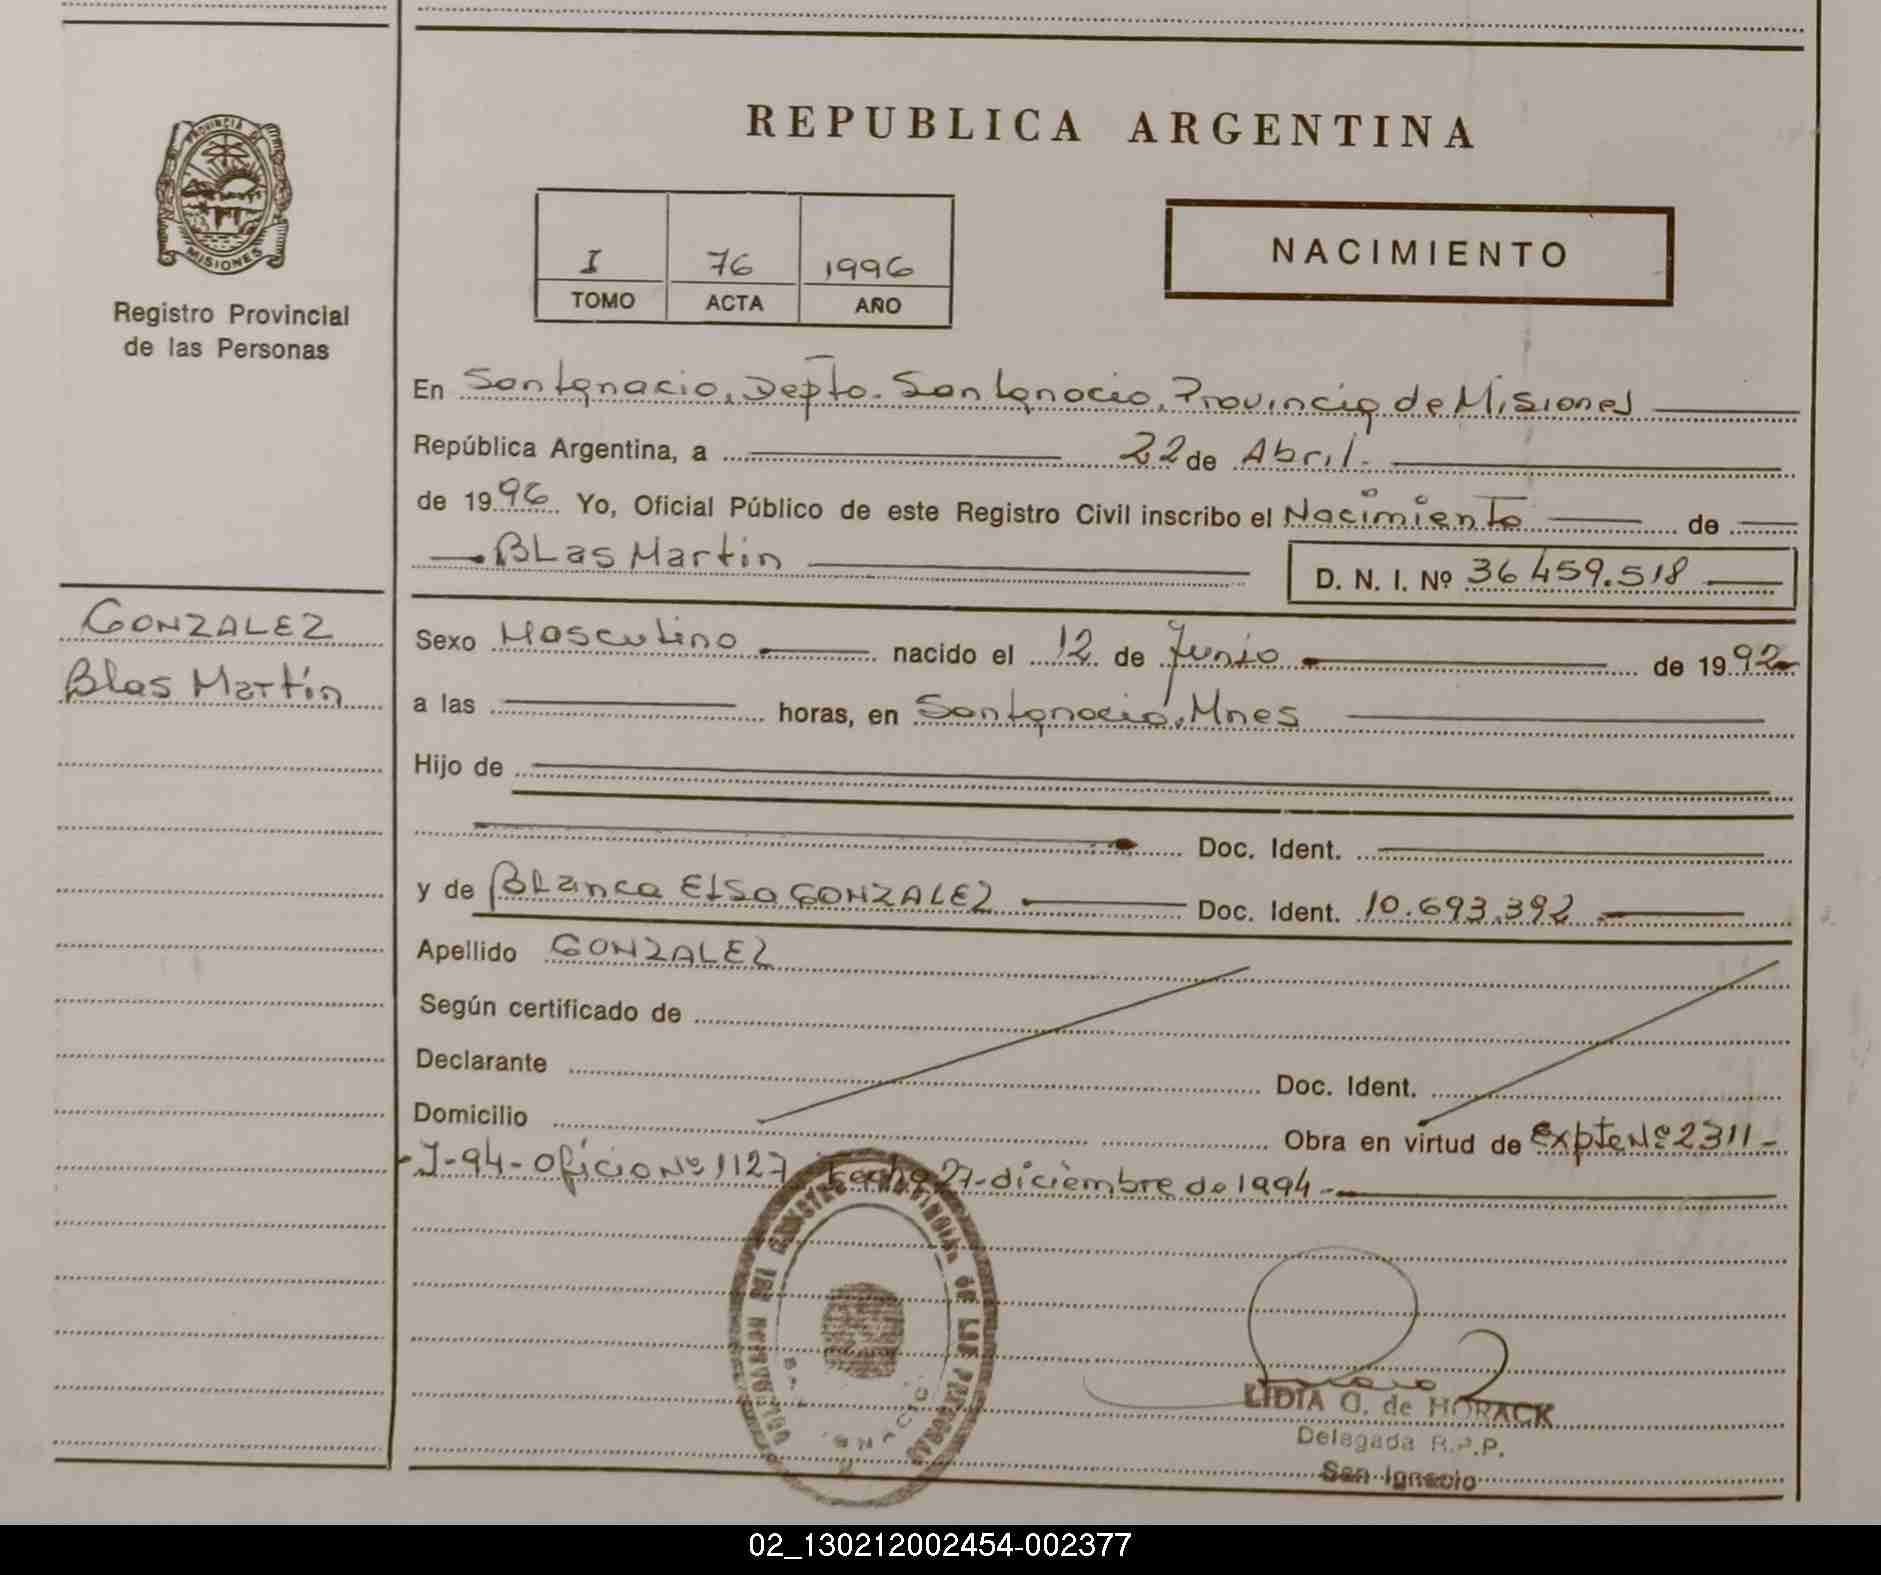 REPUBLICA ARGENTINA
PROVINCIA DE
MISIONES
Registro Provincial
de las Personas
I 76 1996
TOMO ACTA AÑO
NACIMIENTO
En San Ignacio, Depto. San Ignacio, Provincia de Misiones
República Argentina, a 22 de Abril.
de 1996 Yo, Oficial Público de este Registro Civil inscribo el Nacimiento de
Blas Martin D. N. I. Nº 36459.518
GONZALEZ
Blas Martín
Sexo Masculino nacido el 12 de Junio de 1992
a las horas, en San Ignacio, Mnes
Hijo de
Doc. Ident.
y de Blanca Elsa GONZALEZ Doc. Ident. 10.693.392
Apellido GONZALEZ
Según certificado de
Declarante Doc. Ident.
Domicilio Obra en virtud de Expte Nº 2311-
-J-94-Oficio Nº 1127 Fecha 27-diciembre de 1994.-
LIDIA G. de HORACK
Delegada R.P.P.
San Ignacio
02_130212002454-002377